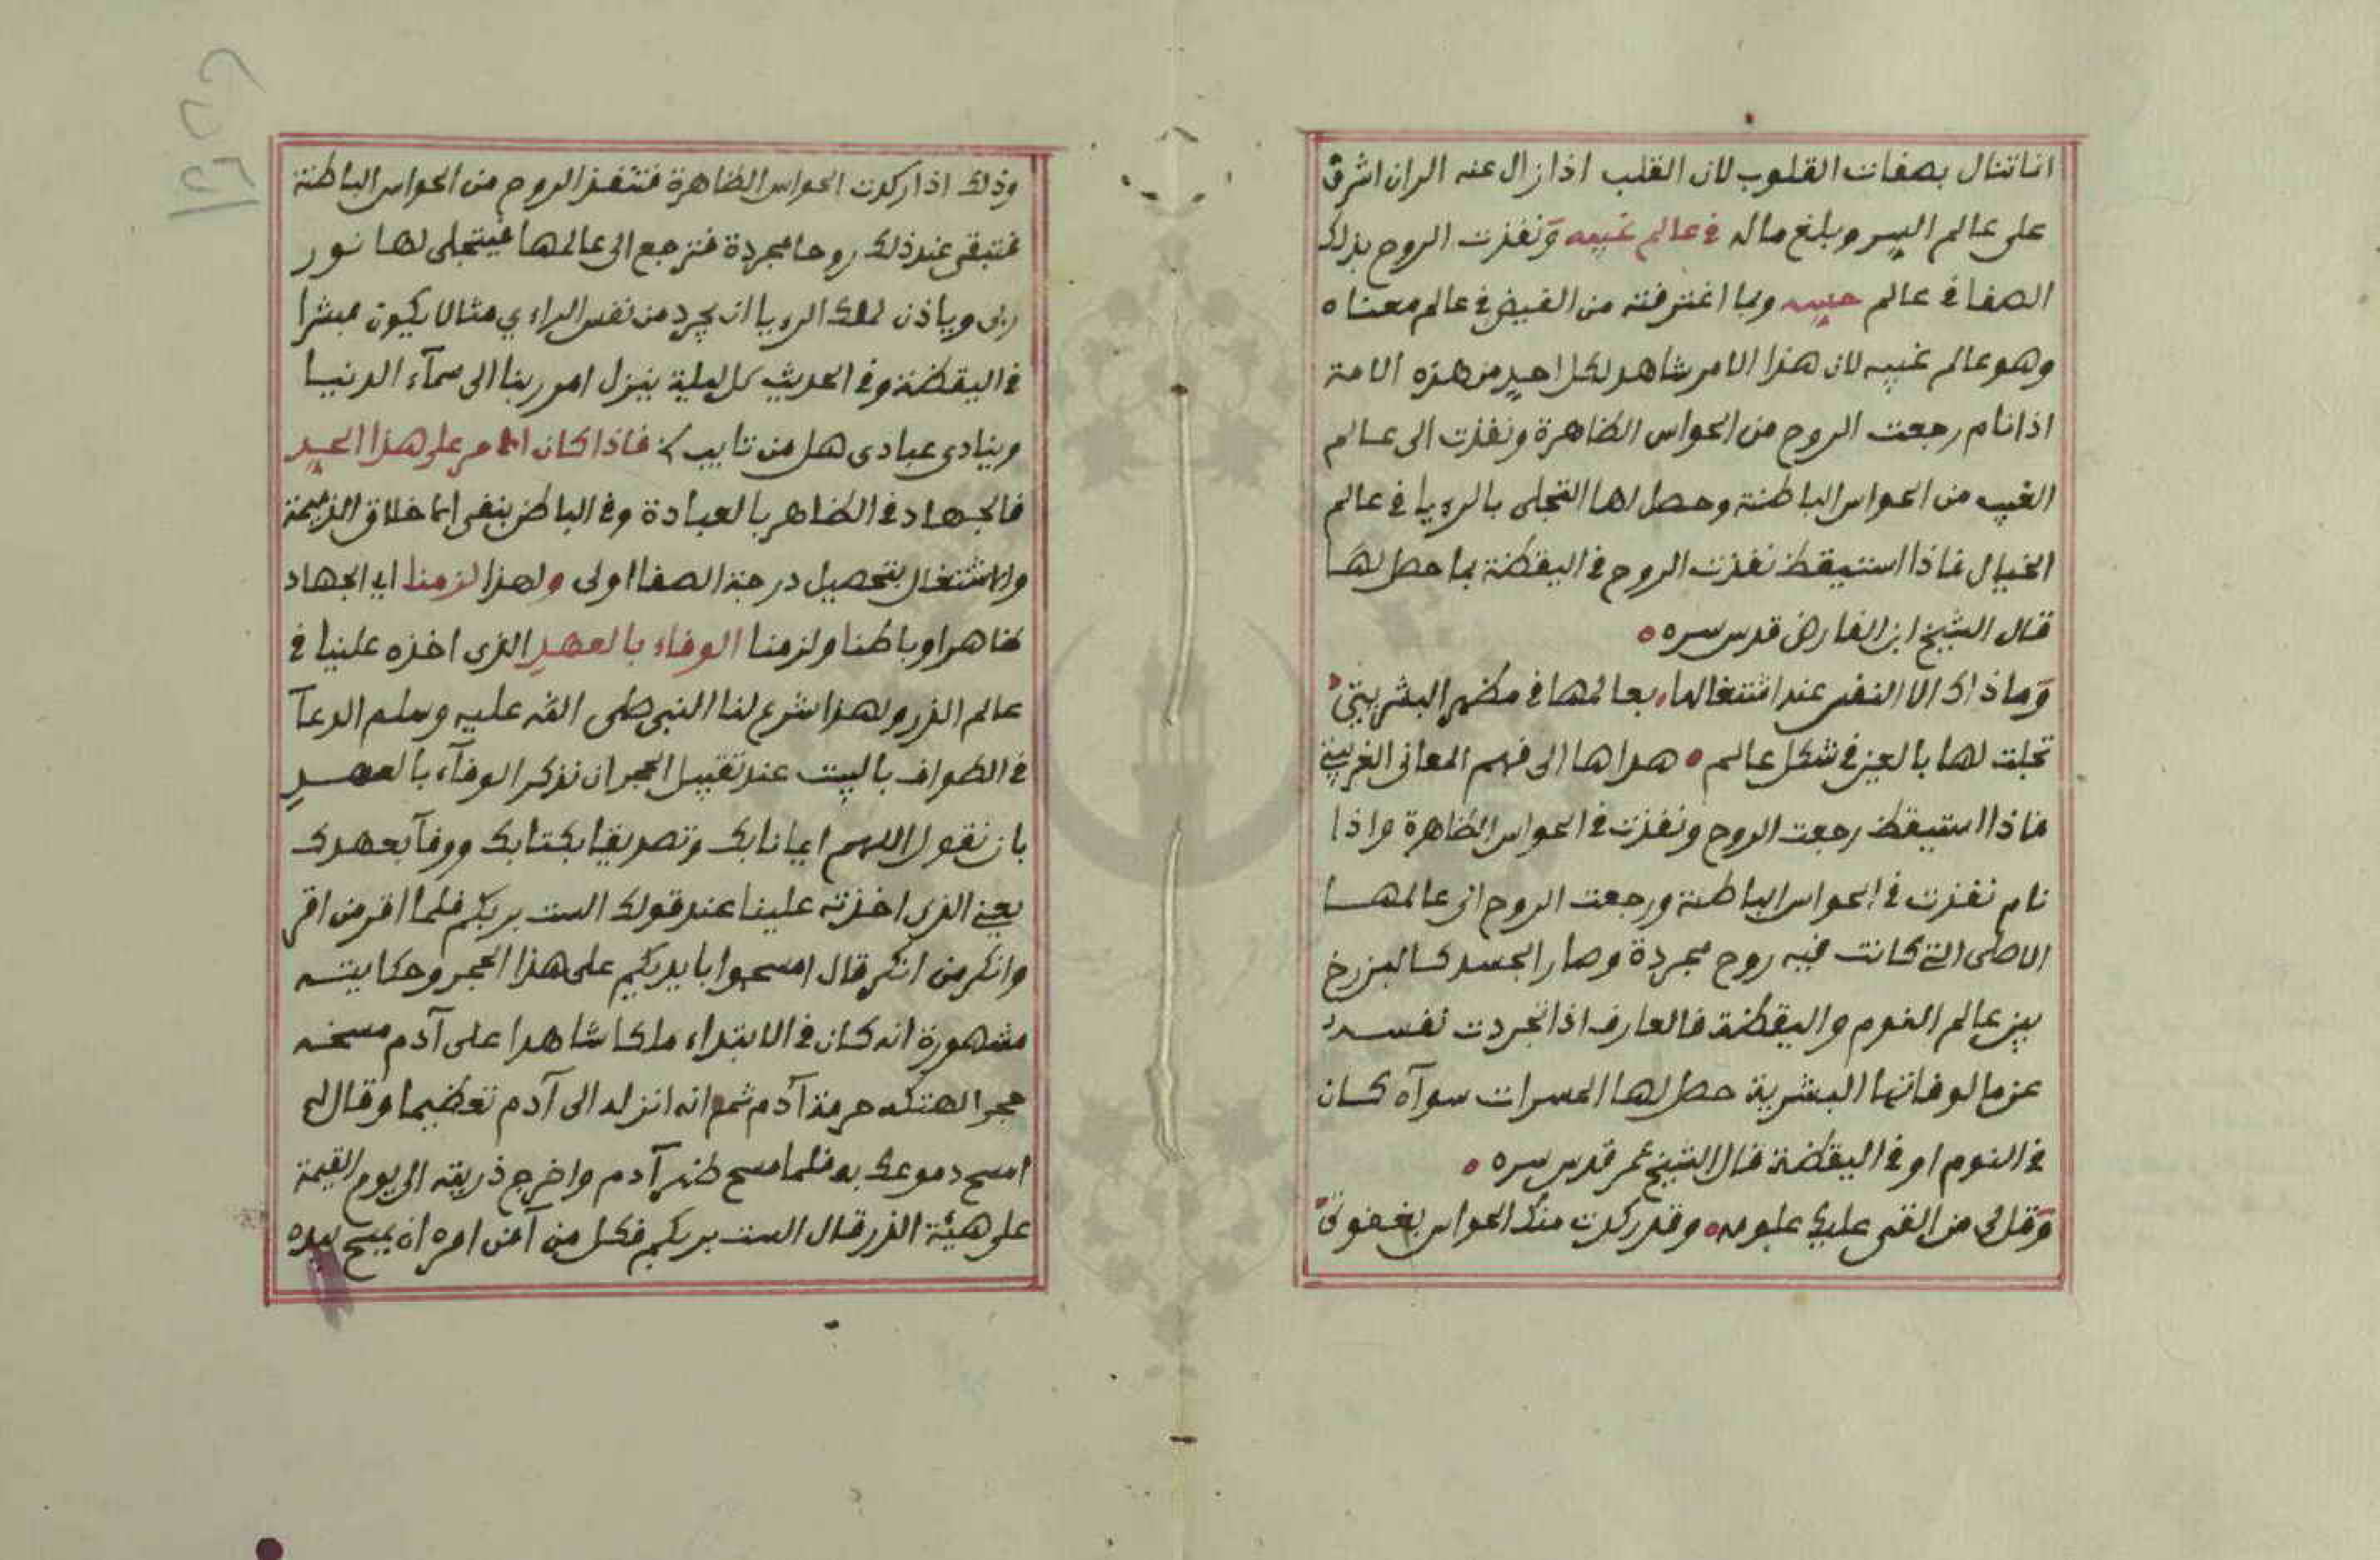 انما تنال بصفات القلوب لان القلب اذا زال عنه الران اشرق
على عالم السر وبلغ ماله في عالم غيبه ونفذت الروح بذلك
الصفا في عالم حسه وبما اغترفته من الفيض في عالم معناه
وهو عالم غيبه لان هذا الامر شاهد لكل احد من هذه الامة
اذا نام رجعت الروح من الحواس الظاهرة ونفذت الى عالم
الغيب من الحواس الباطنة وحصل لها التجلى بالرءيا في عالم
الخيال فاذا استيقظ نفذت الروح في اليقظة بما حصل لها
قال الشيخ ابن الفارض قدس سره
وما ذاك الا النفس عند اشتغالها بعالمها في مظهر البشريتى
تجلت لها بالعين في شكل عالم هداها الى فهم المعاني الغريبة
فاذا استيقظ رجعت الروح ونفذت في الحواس الظاهرة واذا
نام نفذت في الحواس الباطنة ورجعت الروح الى عالمها
الاصلى التي كانت فيه روح مجردة وصار الجسد كالبرزخ
بين عالم النوم واليقظة فالعارف اذا تجردت نفسه
عن مالوفاتها البشرية حصل لها المسرات سوآء كان
في النوم او في اليقظة قال الشيخ عمر قدس سره
وقل لى من القى عليك علومه وقد ركدت منك الحواس بغفوتى
وذلك اذا ركدت الحواس الظاهرة فتنفذ الروح من الحواس الباطنة
فتبقى عند ذلك روحا مجردة فترجع الى عالمها فيتجلى لها نور
ربى وياذن لملك الرءيا ان يجرد من نفس الراءي مثالا يكون مبشرا
في اليقظة وفي الحديث كل ليلة ينزل امور ربنا الى سمآء الدنيا
وينادى عبادى هل من تايب فاذا كان الامر على هذا الحد
فالجهاد في الظاهر بالعبادة وفي الباطن بنفى الاخلاق الذميمة
والاشتغال بتحصيل درجة الصفا اولى ولهذا لزمنا اي الجهاد
ظاهرا وباطنا ولزمنا الوفاء بالعهد الذى اخذه علينا في
عالم الذر ولهذا شرع لنا النبى صلى الله عليه وسلم الدعآ
في الطواف بالبيت عند تقبيل الحجر ان نذكر الوفآء بالعهد
بان نقول اللهم ايمانا بك وتصديقا بكتابك ووفآ بعهدك
يعني الذى اخذته علينا عند قولك الست بربكم فلما اقر من اقر
وانكر من انكر قال امسحوا بايديكم على هذا الحجر وحكايته
مشهورة انه كان في الابتداء ملكا شاهدا على آدم مسخه
حجرا لهتكه حرمة آدم ثم انه انزله الى آدم تعظيما وقال له
امسح دموعك به فلما مسح ظهر آدم واخرج ذريته الى يوم القيمة
على هيئة الذر قال الست بربكم فكل من آمن امره ان يمسح بيده